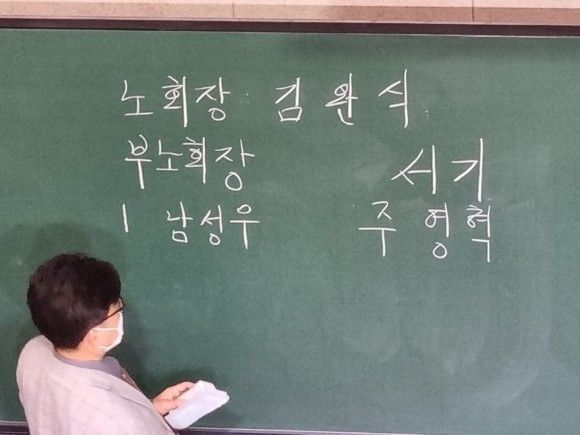 노회장: 김완식
부노회장 서기
1 남성우 주영혁